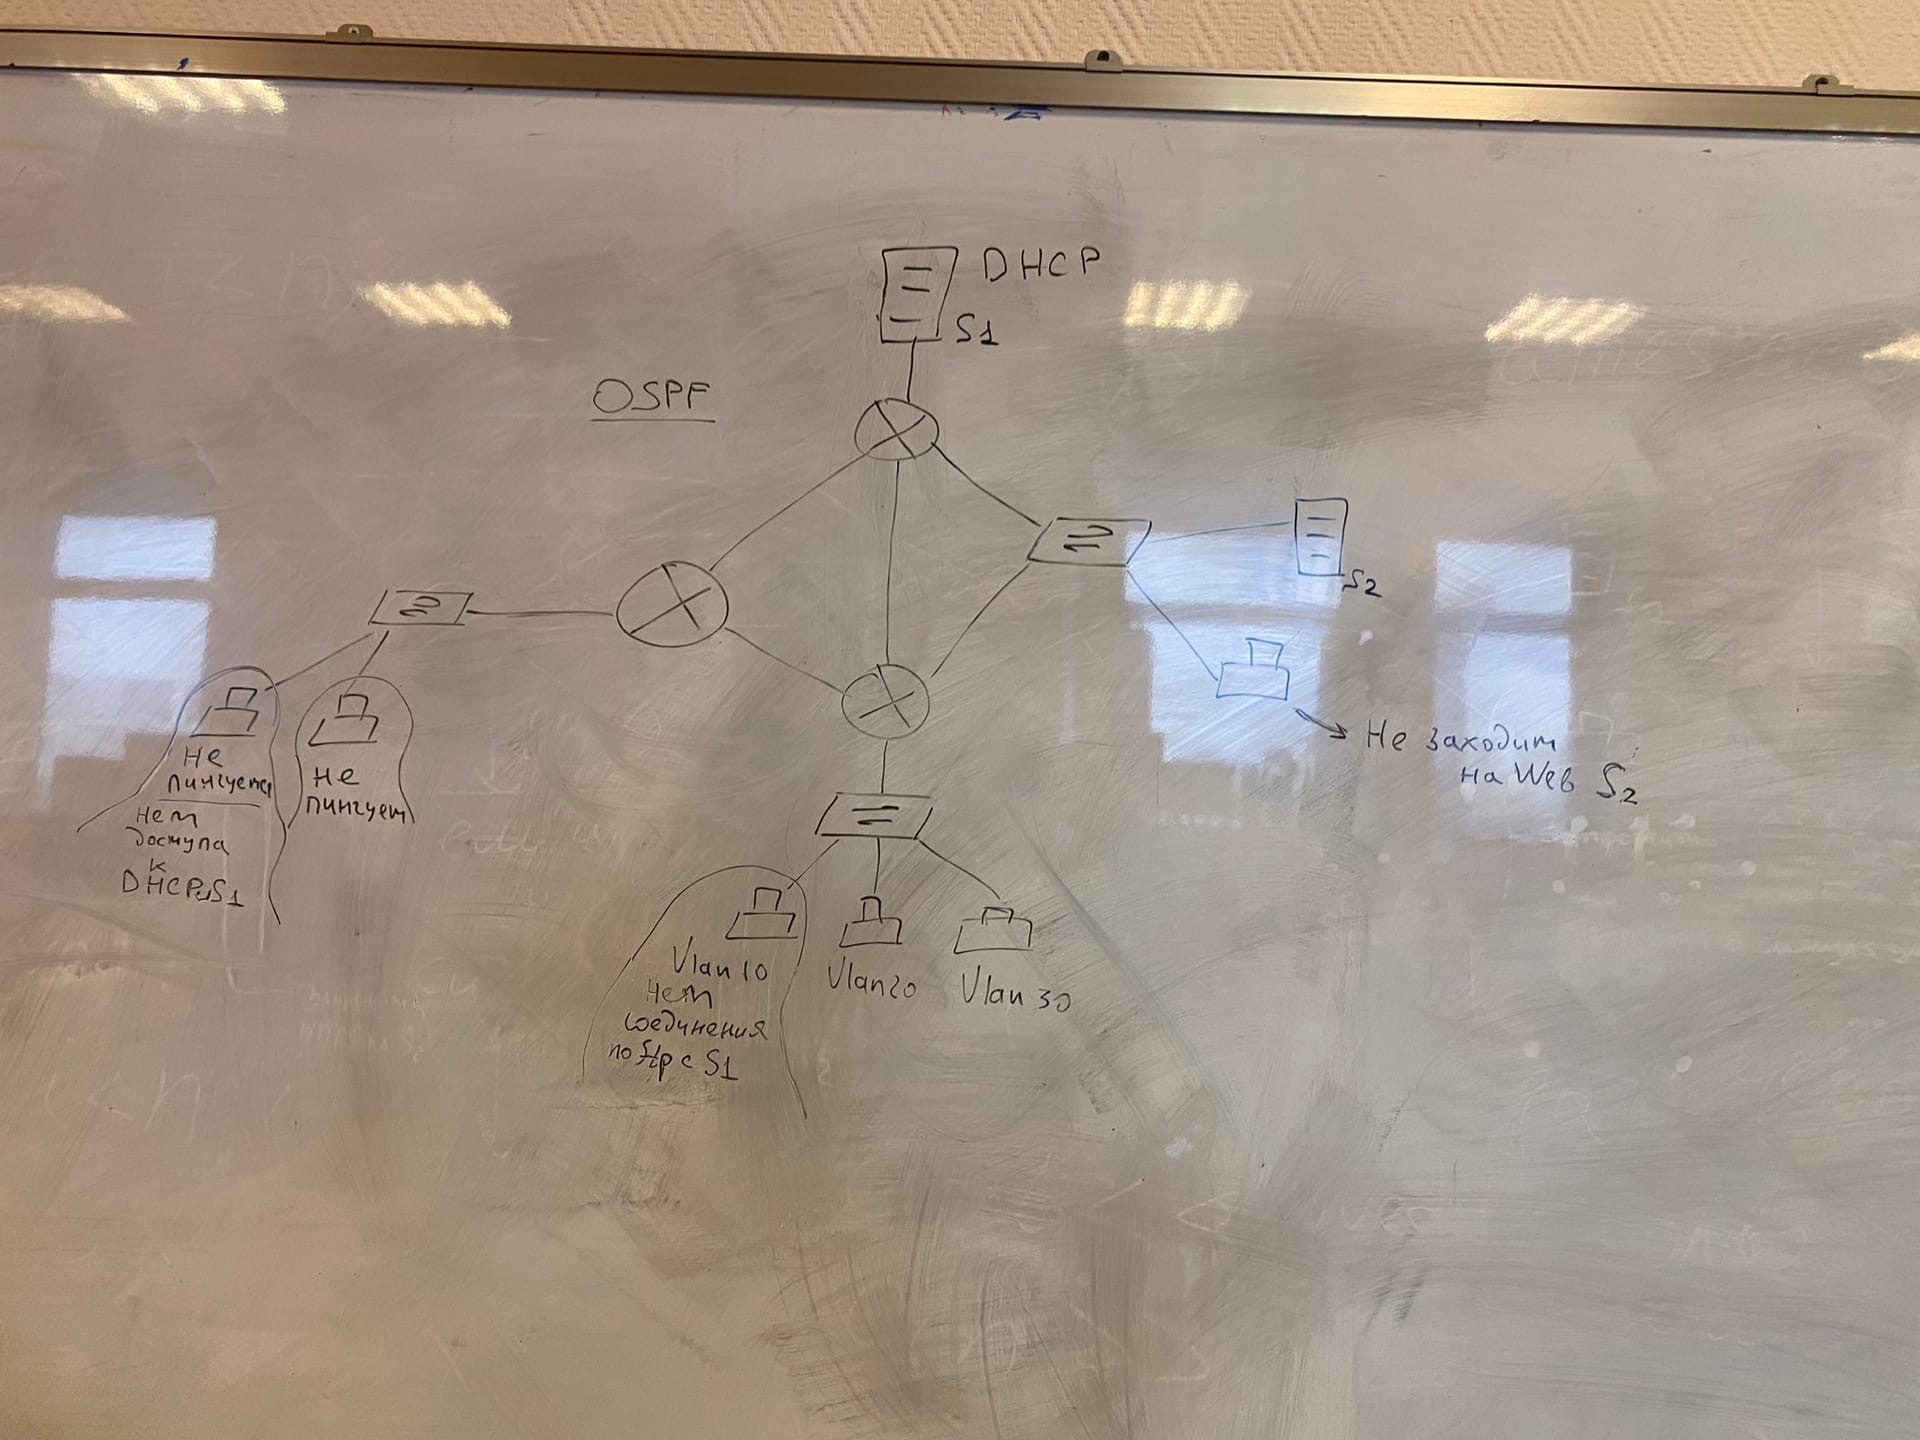 DHCP
S1
OSPF
S2
Не заходит
на Web S2
Не
пингуется
Нет
доступа
к
DHCP S1
Не
пингует
Vlan 10
Нет
соединения
по ftp с S1
Vlan20
Vlan 30